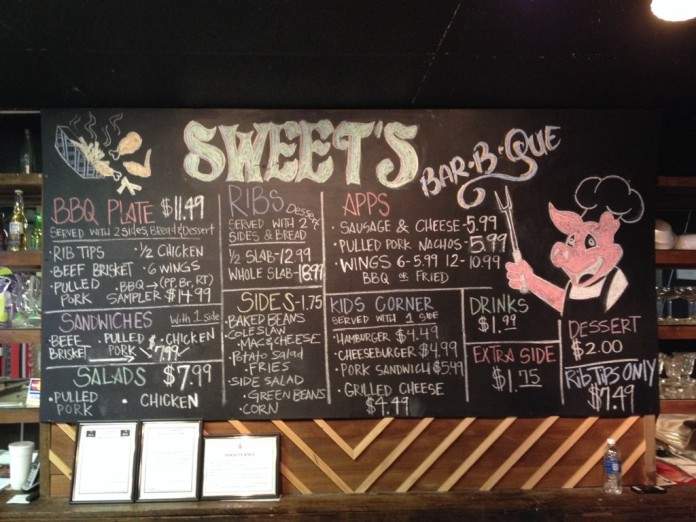 SWEET'S
BAR-B-QUE
BBQ PLATE $11.49
SERVED WITH 2 SIDES, BREAD & Dessert
• RIB TIPS • 1/2 CHICKEN
• BEEF BRISKET • 6 WINGS
• PULLED PORK • BBQ → (PP, Br, RT) SAMPLER $14.99
SANDWICHES With 1 side
• BEEF BRISKET • PULLED PORK • CHICKEN
$7.99
SALADS $7.99
• PULLED PORK • CHICKEN
RIBS Dessert
SERVED WITH 2
SIDES & BREAD
1/2 SLAB - 12.99
WHOLE SLAB - 18.99
SIDES - 1.75
• BAKED BEANS
• COLESLAW
• MAC & CHEESE
• Potato Salad
• FRIES
• SIDE SALAD
• GREEN BEANS
• CORN
APPS
• SAUSAGE & CHEESE - 5.99
• PULLED PORK NACHOS - 5.99
• WINGS 6 - 5.99 12 - 10.99
BBQ OR FRIED
KIDS CORNER
SERVED WITH 1 SIDE
• HAMBURGER $4.49
• CHEESEBURGER $4.99
• PORK SANDWICH $5.49
• GRILLED CHEESE
$4.49
DRINKS
$1.99
EXTRA SIDE
$1.75
DESSERT
$2.00
RIB TIPS ONLY
$7.49